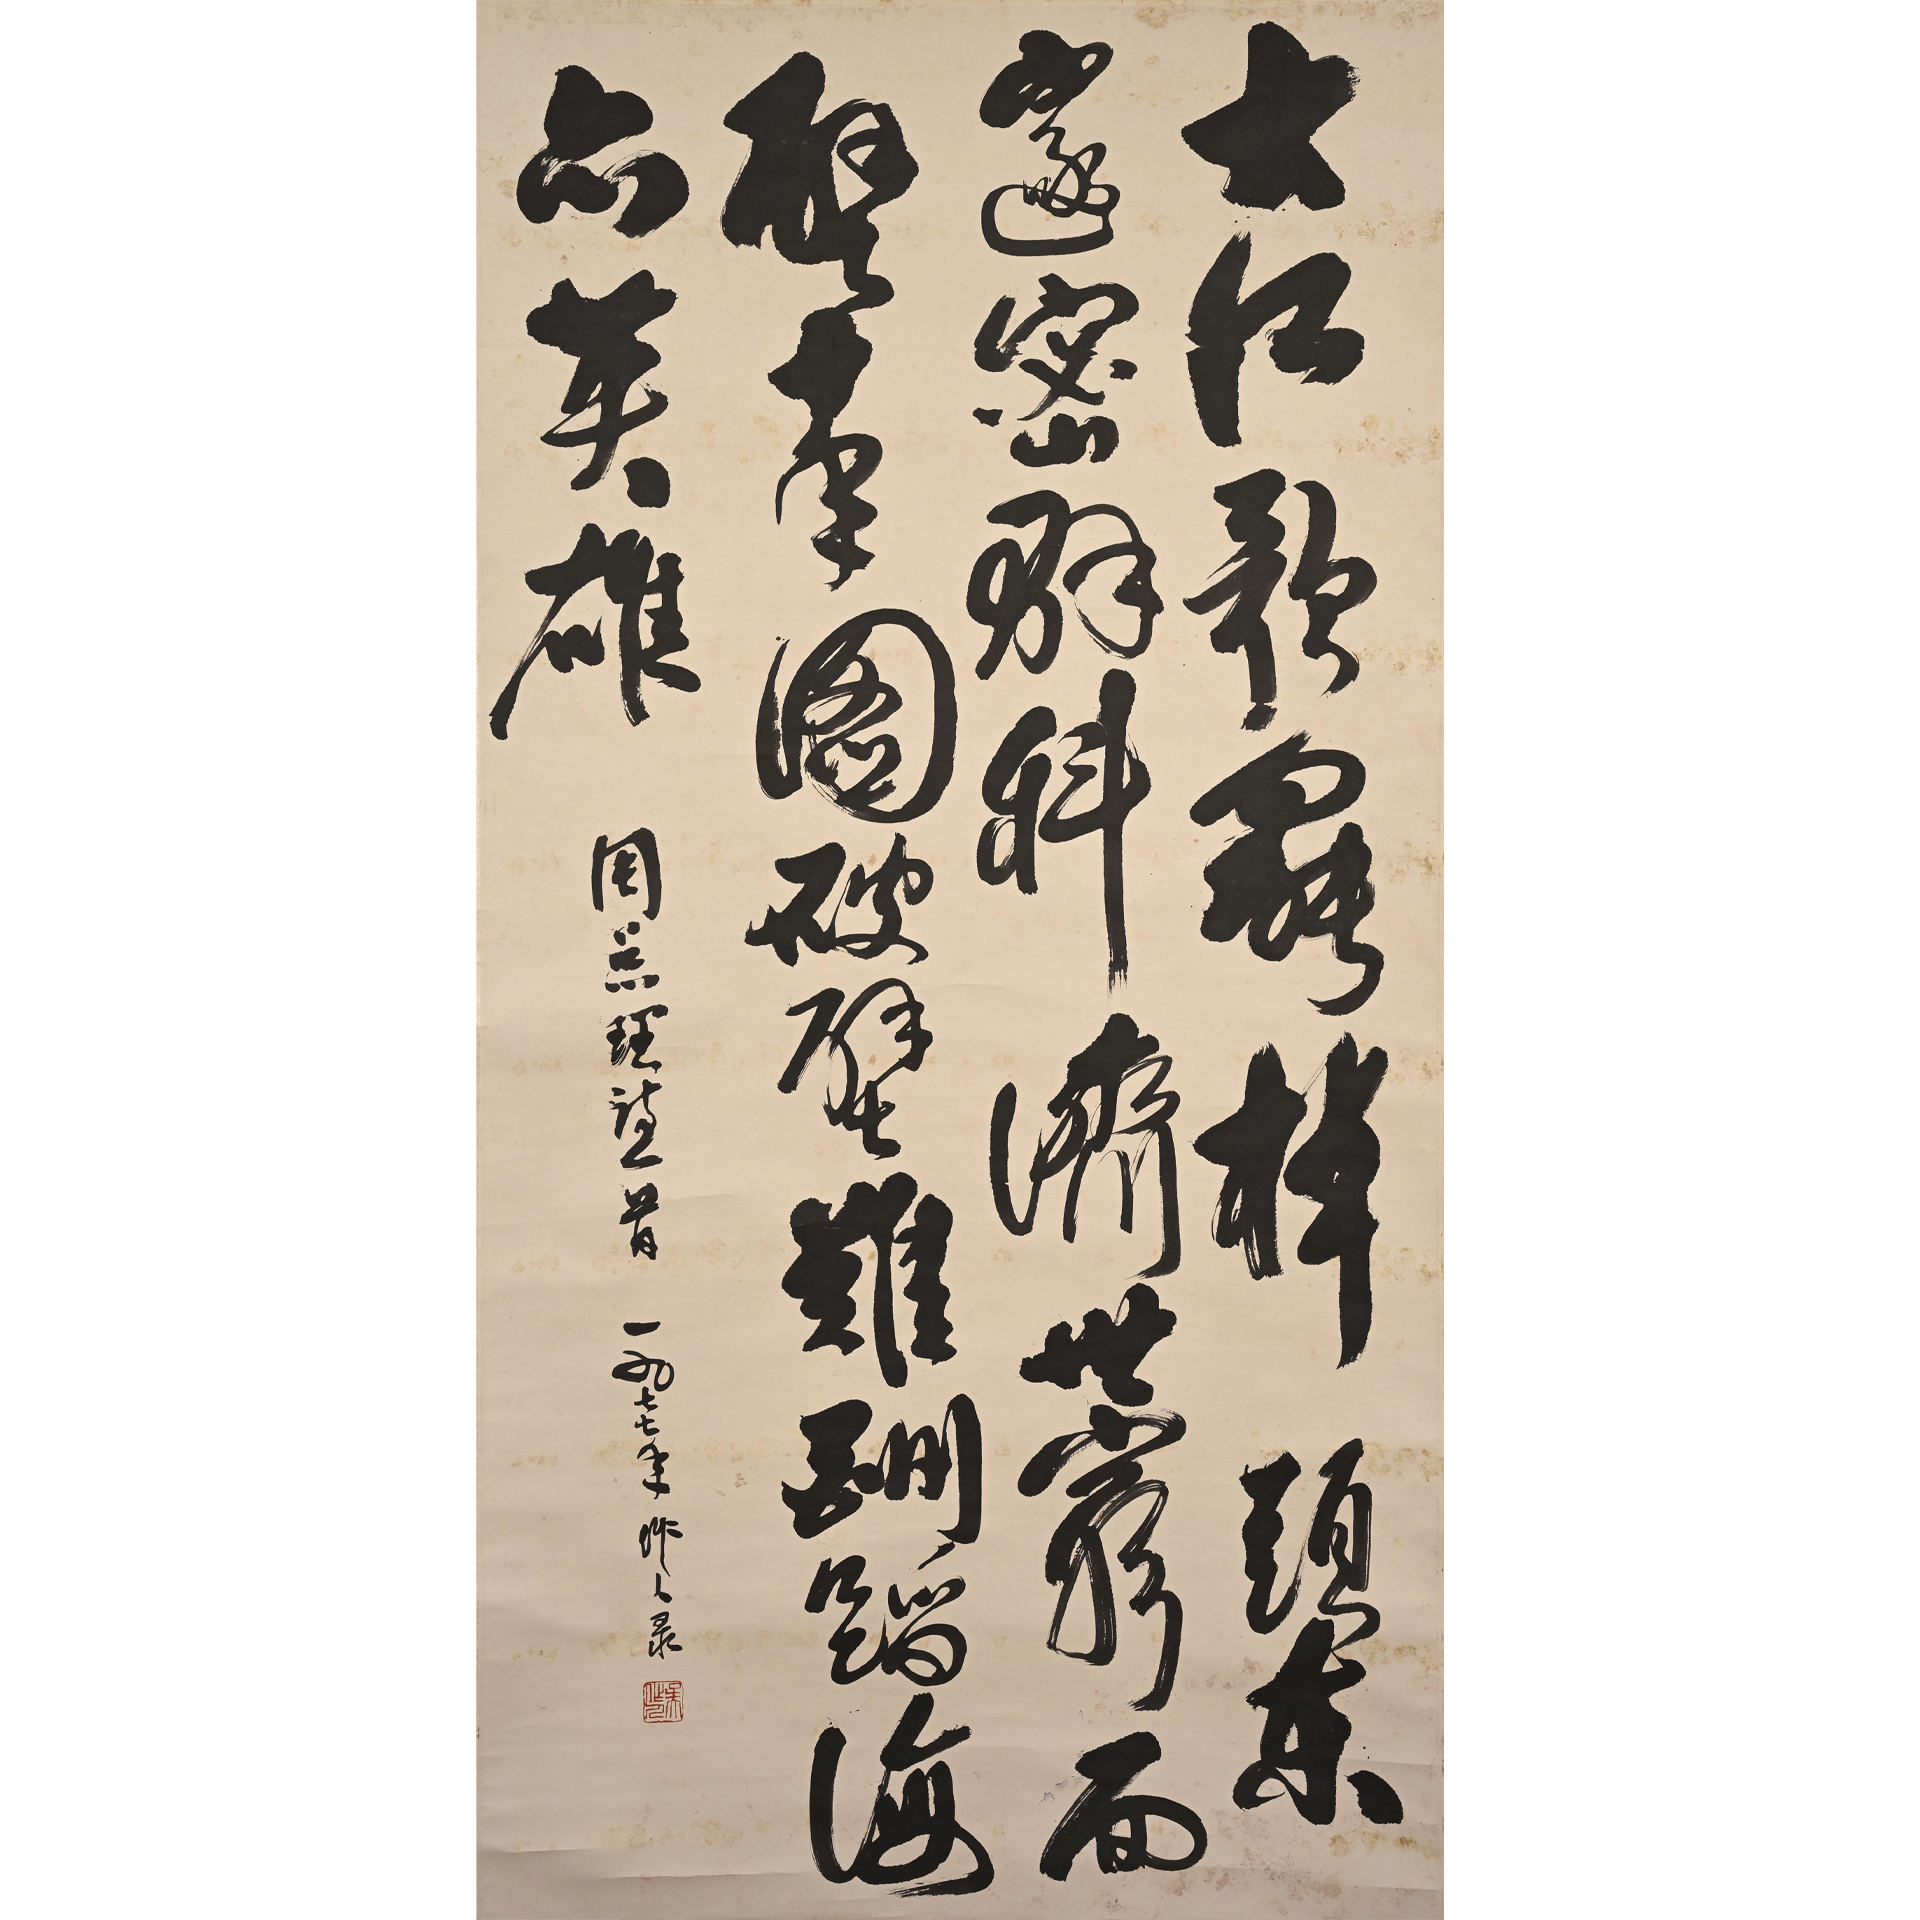 大江歌罷棹頭東
邃密群科濟世窮面
壁十年圖破壁難酬蹈海
亦英雄
周总理詩一首 一九七七年 作人录